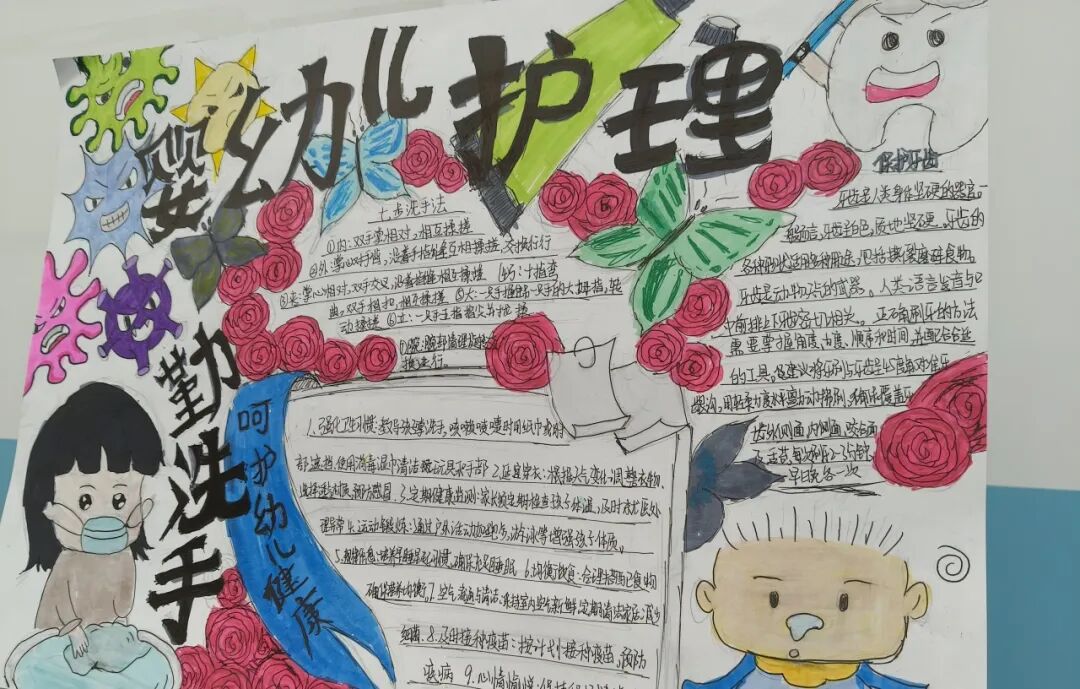 婴幼儿护理
勤洗手
呵护幼儿健康
七步洗手法
①内:双手掌相对,相互揉搓
②外:掌心对手背,沿着手指缝互相揉搓,交换行
③夹:掌心相对,双手交叉,沿着指缝相互揉搓 ④弓:十指弯
曲,双手相扣,相互揉搓 ⑤大:一只手握另一只手的大拇指,转
动揉搓 ⑥立:一只手五指指尖并拢 揉
⑦腕:腕部清理
换进行。
1.强化卫生习惯:教导孩子勤洗手,咳嗽喷嚏时用纸巾或肘
部遮挡,使用消毒湿巾清洁玩具及手部 2.适宜穿衣:根据天气变化调整衣物
选择透过度 预防感冒 3.定期健康监测:家长需定期检查孩子体温,及时就医处
理异常 4.运动与锻炼:通过户外活动如跑步,游泳等增强孩子体质。
5.规律作息:培养早睡早起习惯,确保充足睡眠 6.均衡饮食:合理搭配食物
确保营养均衡,7.空气清新与清洁:保持室内空气新鲜,定期清洁家居,减少
细菌.8.及时接种疫苗:按计划接种疫苗,预防
疾病 9.心情愉悦:保持
保护牙齿
牙齿是人类身体坚硬的器官一
般而言,牙齿白色,质地坚硬,牙齿的
各种形状适用多种用途,包括撕裂磨碎食物。
牙齿是动物的武器。人类语言发音与
中前排上下牙密切相关。正确刷牙的方法
需要掌握角度,力度,顺序和时间,并配合合适
的工具,建议将牙刷与牙齿呈45度角对准牙
龈沟,用轻柔力度水平颤动拂刷,确保覆盖牙
齿外侧面,内侧面,咬合面
每次刷牙2-3分钟,
早晚各一次